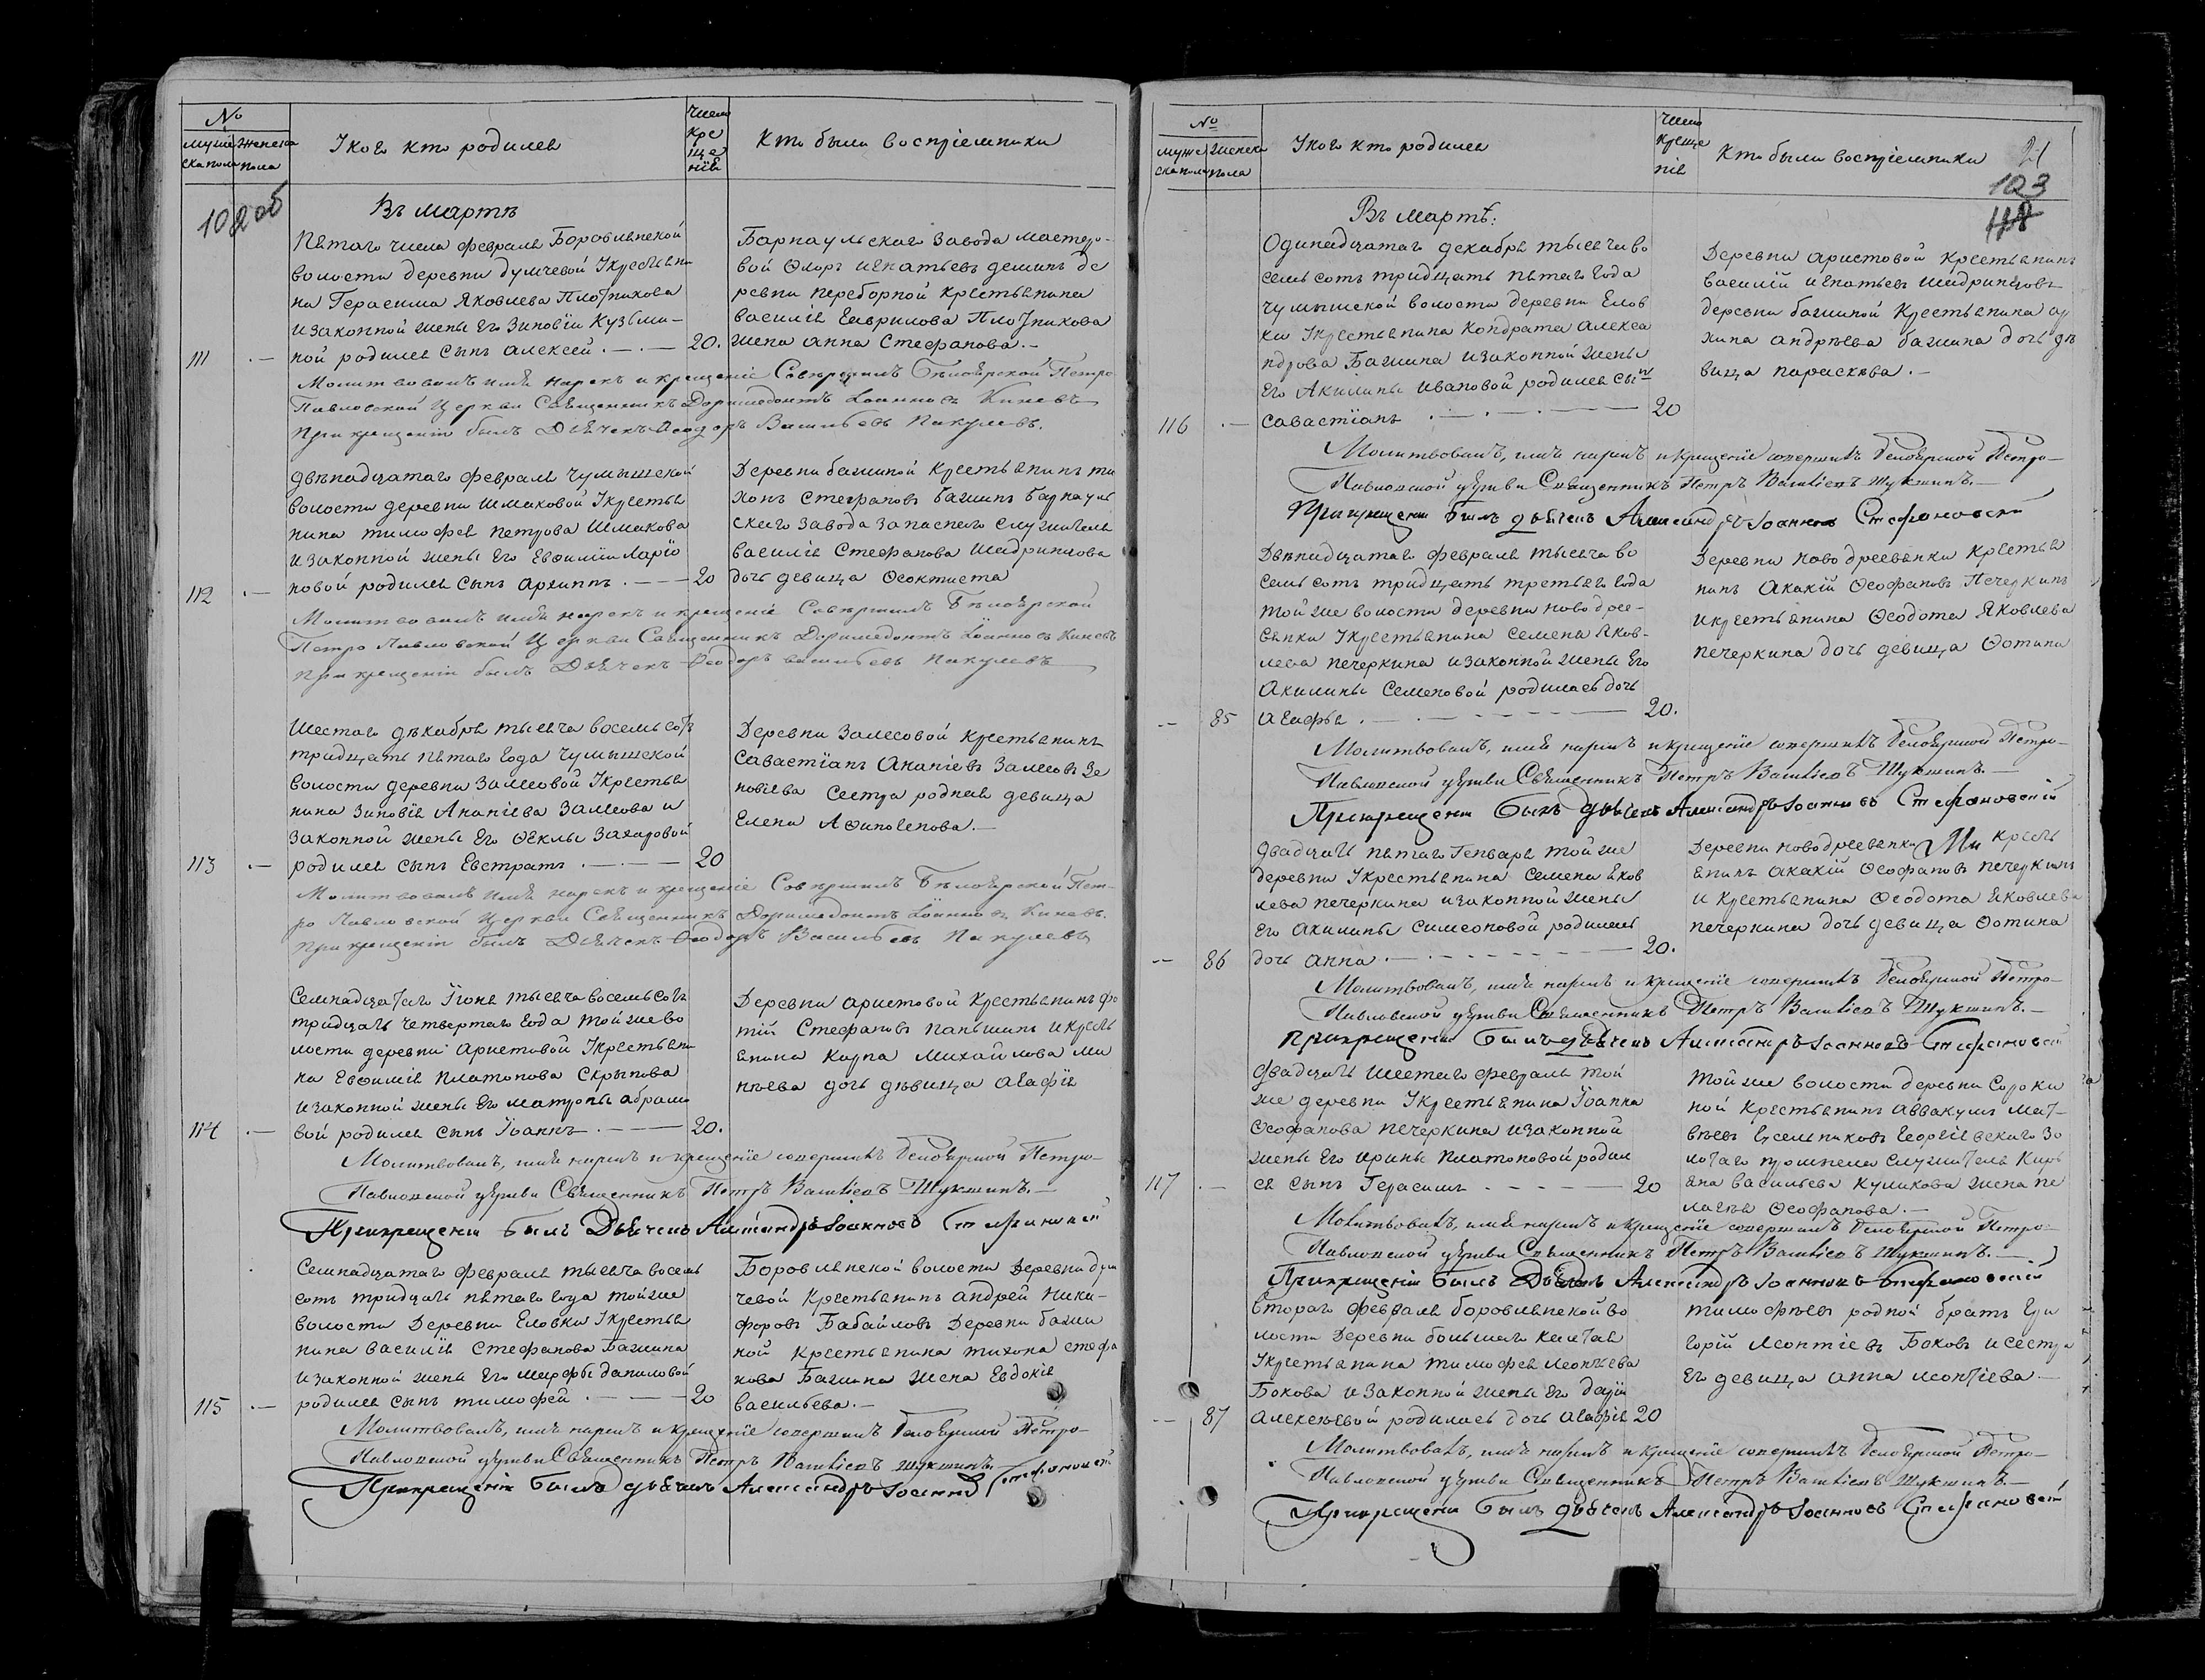 №
Мужеска пола
Женска пола
У кого кто родился
Число крещенія
Кто были воспріемники
102 об
Въ мартѣ
Пятаго числа февраля Боровлянской
волости деревни думчевой У крестьяни
на Герасима Яковлева Плотникова
и законной жены его Зиновіи Кузьми-
111 ной родился сынъ алексей. 20.
Барнаульскаго завода мастеро-
вой Ѳлоръ игнатьевъ деминъ де
ревни переборной крестьянина
василья Гаврилова Плотникова
жена анна Стефанова.
Молитвовалъ имя нарекъ и крещеніе Совершилъ Бѣлоярской Петро
Павловской Церкви Священникъ Доримедонтъ Іоанновъ Киневъ
При крещеніи былъ Дьячекъ Ѳеодоръ Васильевъ Пакулевъ.
двѣнадцатаго февраля чумышской
волости деревни Шмаковой У крестья
нина тимофея петрова Шмакова
и законной жены его Евфиміи Ларіо
112 новой родился сынъ архиппъ. 20
Деревни бажиной крестьянинъ ти
хонъ Стефановъ бажинъ барнауль
скаго завода запаснаго служителя
василія Стефанова Шадринцова
дочь девица Ѳеоктиста
Молитвовалъ имя нарекъ и крещеніе Совершилъ Бѣлоярской
Петро Павловской Церкви Священникъ Доримедонтъ Іоанновъ Киневъ
При крещеніи былъ Дьячекъ Ѳеодоръ васильевъ Пакулевъ
Шестаго дѣкабря тысяча восемьсотъ
тридцать пятаго года чумышской
волости деревни Залесовой У крестья
нина Зиновія Ананіева Залесова и
законной жены его Ѳеклы Захаровой
113 родился сынъ Евстратъ. 20
Деревни Залесовой крестьянинъ
Савастіанъ Ананіевъ Залесовъ Зе
новіева сестра родная девица
Елена Афиногенова.
Молитвовалъ имя нарекъ и крещеніе Совершилъ Бѣлоярской Пет-
ро Павловской Церкви Священникъ Доримедонтъ Іоанновъ Киневъ.
При крещеніи былъ Дьячекъ Ѳеодоръ Васильевъ Пакулевъ
Семнадцатаго Іюня тысяча восемьсотъ
тридцать четвертаго года той же во
лости деревни аристовой У крестьяни
на Евфимія платонова Скрыпова
и законной жены его матроны абрамо
114 вой родился сынъ Іоаннъ. 20.
Деревни аристовой крестьянинъ фо
тій Стефановъ паньшинъ и кресть
янина карпа михайлова ми
нѣева дочь дѣвица агафія
Молитвовалъ, имя нарекъ и крещеніе совершилъ Белоярской Петро-
Павловской церкви Священникъ Петръ Васильевъ Шукшинъ.
При крещеніи былъ Дьячекъ Александръ Іоанновъ Стефановской
Семнадцатаго февраля тысяча восемь
сотъ тридцать пятаго года той же
волости Деревни Еловки У крестья
нина василія Стефанова Бажина
и законной жены его марфы даниловой
115 родился сынъ тимофей. 20
Боровлянской волости Деревни дум
чевой крестьянинъ андрей ники-
форовъ Бабайловъ Деревни бажи
ной крестьянина тихона стефа
нова Бажина жена Евдокія
васильева.
Молитвовалъ, имя нарекъ и крещеніе совершилъ Белоярской Петро-
Павловской церкви Священникъ Петръ Васильевъ Шукшинъ.
При крещеніи былъ дьячекъ Александръ Іоанновъ Стефановской
№
Мужеска пола
Женска пола
У кого кто родился
Число крещенія
Кто были воспріемники
21
103
118
Въ мартѣ:
Одинадцатаго декабря тысяча во
семьсотъ тридцать пятаго года
чумышской волости деревни Елов
ки У крестьянина кондрата алекса
ндрова Бажина и законной жены
его Акилины ивановой родился сынъ
116 савастіанъ 20
Деревни аристовой крестьянинъ
василій игнатьевъ шадринцовъ
деревни бажиной крестьянина ар
хипа андрѣева бажина дочь дѣ
вица параскева.
Молитвовалъ, имя нарекъ и крещеніе совершилъ Белоярской Петро-
Павловской церкви Священникъ Петръ Васильевъ Шукшинъ.
При крещеніи былъ дьячекъ Александръ Іоанновъ Стефановской
Двѣнадцатаго февраля тысяча во
семьсотъ тридцать третьяго года
той же волости деревни новодрес-
вянки У крестьянина семена яков-
лева печеркина и законной жены его
акилины семеновой родилась дочь
85 агафья. 20.
Деревни новодресвянки крестья
нинъ акакій Ѳеофановъ Печеркинъ
и крестьянина Ѳеодота яковлева
печеркина дочь девица Фотина
Молитвовалъ, имя нарекъ и крещеніе совершилъ Белоярской Петро-
Павловской церкви Священникъ Петръ Васильевъ Шукшинъ.
При крещеніи былъ дьячекъ Александръ Іоанновъ Стефановской
двадцать пятаго Генваря той же
деревни У крестьянина семена яков
лева печеркина и законной жены
его акилины симеоновой родилась
86 дочь анна. 20.
Деревни новодресвянки кресть
янинъ акакій Ѳеофановъ печеркинъ
и крестьянина Ѳеодота яковлева
печеркина дочь девица Фотина
Молитвовалъ, имя нарекъ и крещеніе совершилъ Белоярской Петро-
Павловской церкви Священникъ Петръ Васильевъ Шукшинъ.
При крещеніи былъ дьячекъ Александръ Іоанновъ Стефановской
двадцать шестаго февраля той
же деревни У крестьянина Іоанна
Ѳеофанова печеркина и законной
жены его ирины платоновой родил
117 ся сынъ Герасимъ 20
той же волости деревни Сороки
ной крестьянинъ аввакумъ мат-
вѣевъ Гусельниковъ Георгіевскаго зо
лотаго промысла служителя кирь
яна васильева куликова жена пе
лагея Ѳеофанова.
Молитвовалъ, имя нарекъ и крещеніе совершилъ Белоярской Петро-
Павловской церкви Священникъ Петръ Васильевъ Шукшинъ.
При крещеніи былъ Дьячекъ Александръ Іоанновъ Стефановской
втораго февраля боровлянской во
лости Деревни большаго калтая
У крестьянина тимофея леонтьева
Бокова и законной жены его дарьи
87 алексѣевой родилась дочь агафія 20
тимофѣевъ родной братъ Гри
горій леонтіевъ Боковъ и сестра
его девица анна леонтіева.
Молитвовалъ, имя нарекъ и крещеніе совершилъ Белоярской Петро-
Павловской церкви Священникъ Петръ Васильевъ Шукшинъ.
При крещеніи былъ дьячекъ Александръ Іоанновъ Стефановской